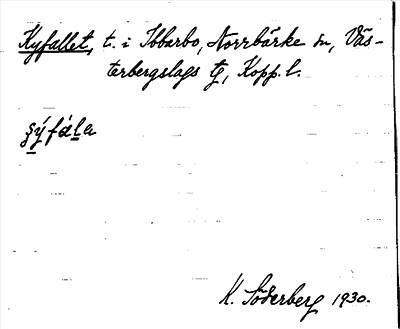 Kyfallet, t. i Ibbarbo, Norrbärke sn, Väs-
terbergslags tg, Kopp. l.
ş̱ýfàḻa
K. Söderberg 1930.